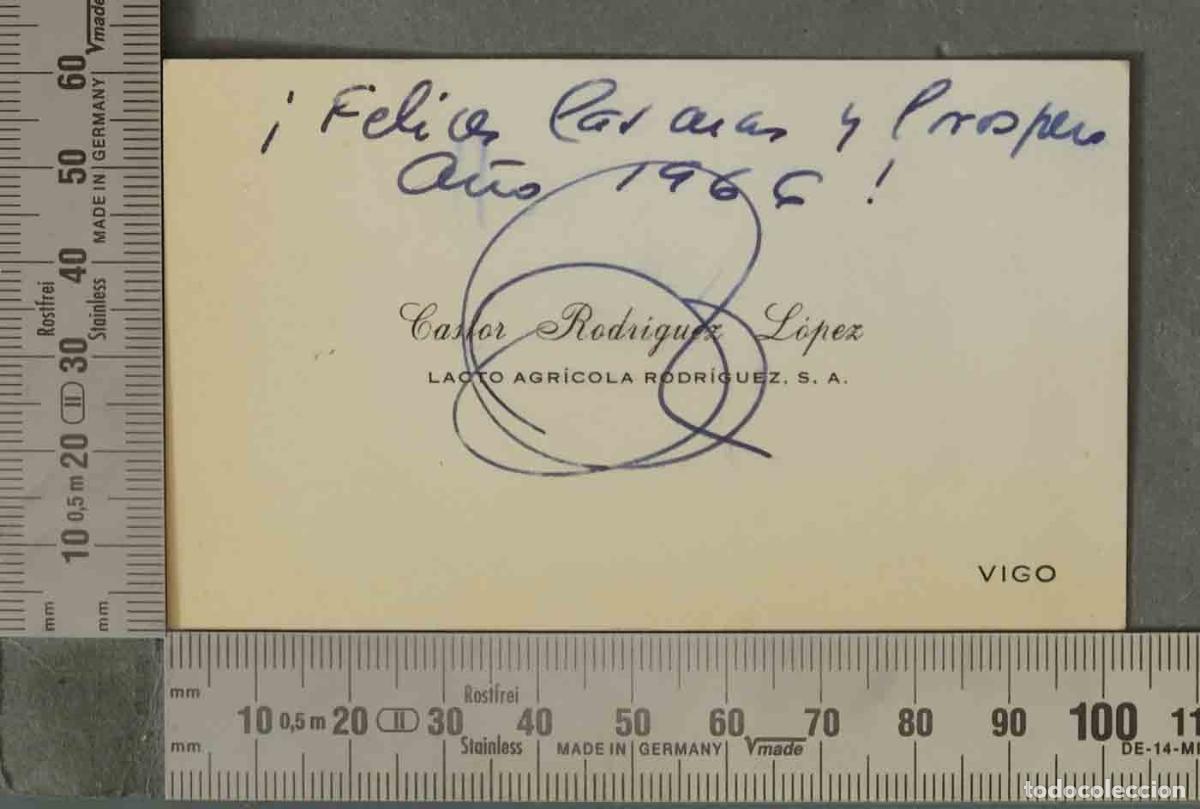 ¡ Felices Pascuas y Prospero
Año 1966 !
Castor Rodríguez López
LACTO AGRÍCOLA RODRÍGUEZ, S. A.
VIGO
mm 10 0,5 m 20 II 30 40 50 60
mm
Rostfrei
Stainless MADE IN GERMANY Vmade
mm Rostfrei
10 0,5 m 20 II 30 40 50 60 70 80 90 100 11
mm Stainless MADE IN GERMANY Vmade DE-14-M
todocoleccion